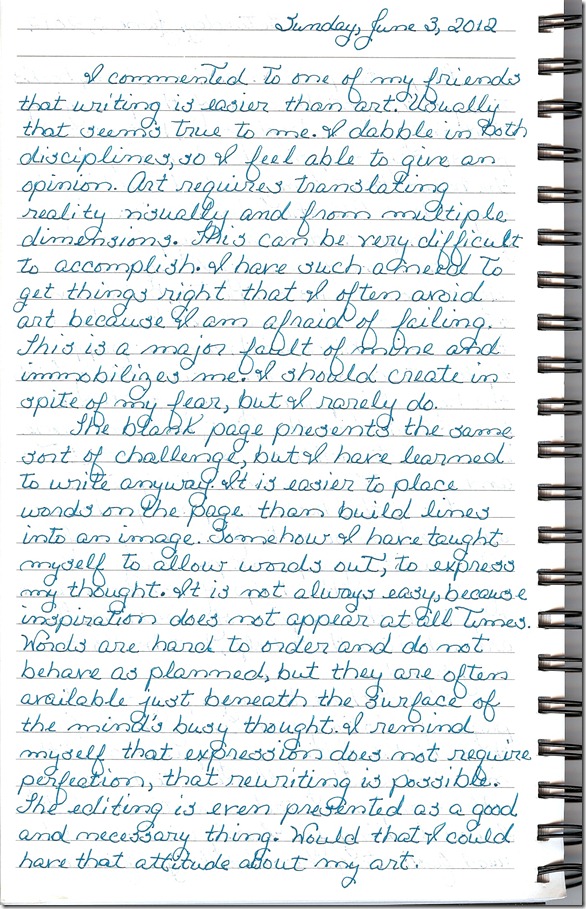 Sunday, June 3, 2012
I commented to one of my friends
that writing is easier than art. Usually
that seems true to me. I dabble in both
disciplines, so I feel able to give an
opinion. Art requires translating
reality visually and from multiple
dimensions. This can be very difficult
to accomplish. I have such a need to
get things right that I often avoid
art because I am afraid of failing.
This is a major fault of mine and
immobilizes me. I should create in
spite of my fear, but I rarely do.
The blank page presents the same
sort of challenge, but I have learned
to write anyway. It is easier to place
words on the page than build lines
into an image. Somehow I have taught
myself to allow words out, to express
my thought. It is not always easy, because
inspiration does not appear at all times.
Words are hard to order and do not
behave as planned, but they are often
available just beneath the surface of
the mind's busy thought. I remind
myself that expression does not require
perfection, that rewriting is possible.
The editing is even presented as a good
and necessary thing. Would that I could
have that attitude about my art.